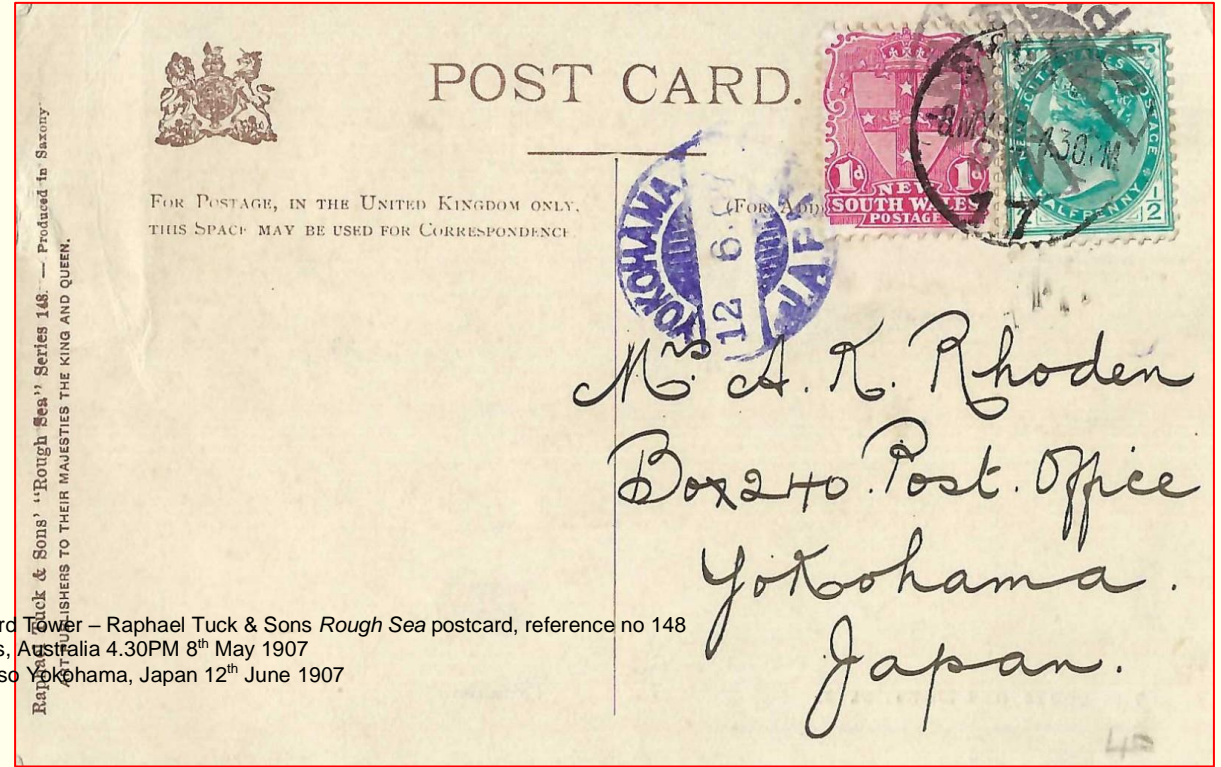 POST CARD.
FOR POSTAGE, IN THE UNITED KINGDOM ONLY,
THIS SPACE MAY BE USED FOR CORRESPONDENCE
(FOR
1d NEW 1d
SOUTH WALES
POSTAGE
POSTAGE
HALFPENNY
1/2
8 MY 4.30 PM
17
YOKOHAMA
12 6.
JAPA
Mrs. A. K. Rhoden
Box 240. Post. Office
Yokohama.
Japan.
Raphael Tuck & Sons' "Rough Sea" Series 148. — Produced in Saxony
ART PUBLISHERS TO THEIR MAJESTIES THE KING AND QUEEN.
rd Tower – Raphael Tuck & Sons Rough Sea postcard, reference no 148
s, Australia 4.30PM 8th May 1907
so Yokohama, Japan 12th June 1907